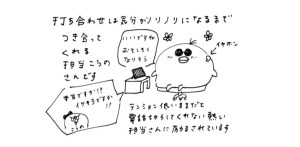 打ち合わせは気分がノリノリになるまで
つき合って
くれる
担当こうの
さんです
いいですね
おもしろく
なりそう
イケボン
本当ですか!?
イケそうですか
!?
こうの
テンション低いままだと
電話切らしてくれない熱い
担当さんに励まされています